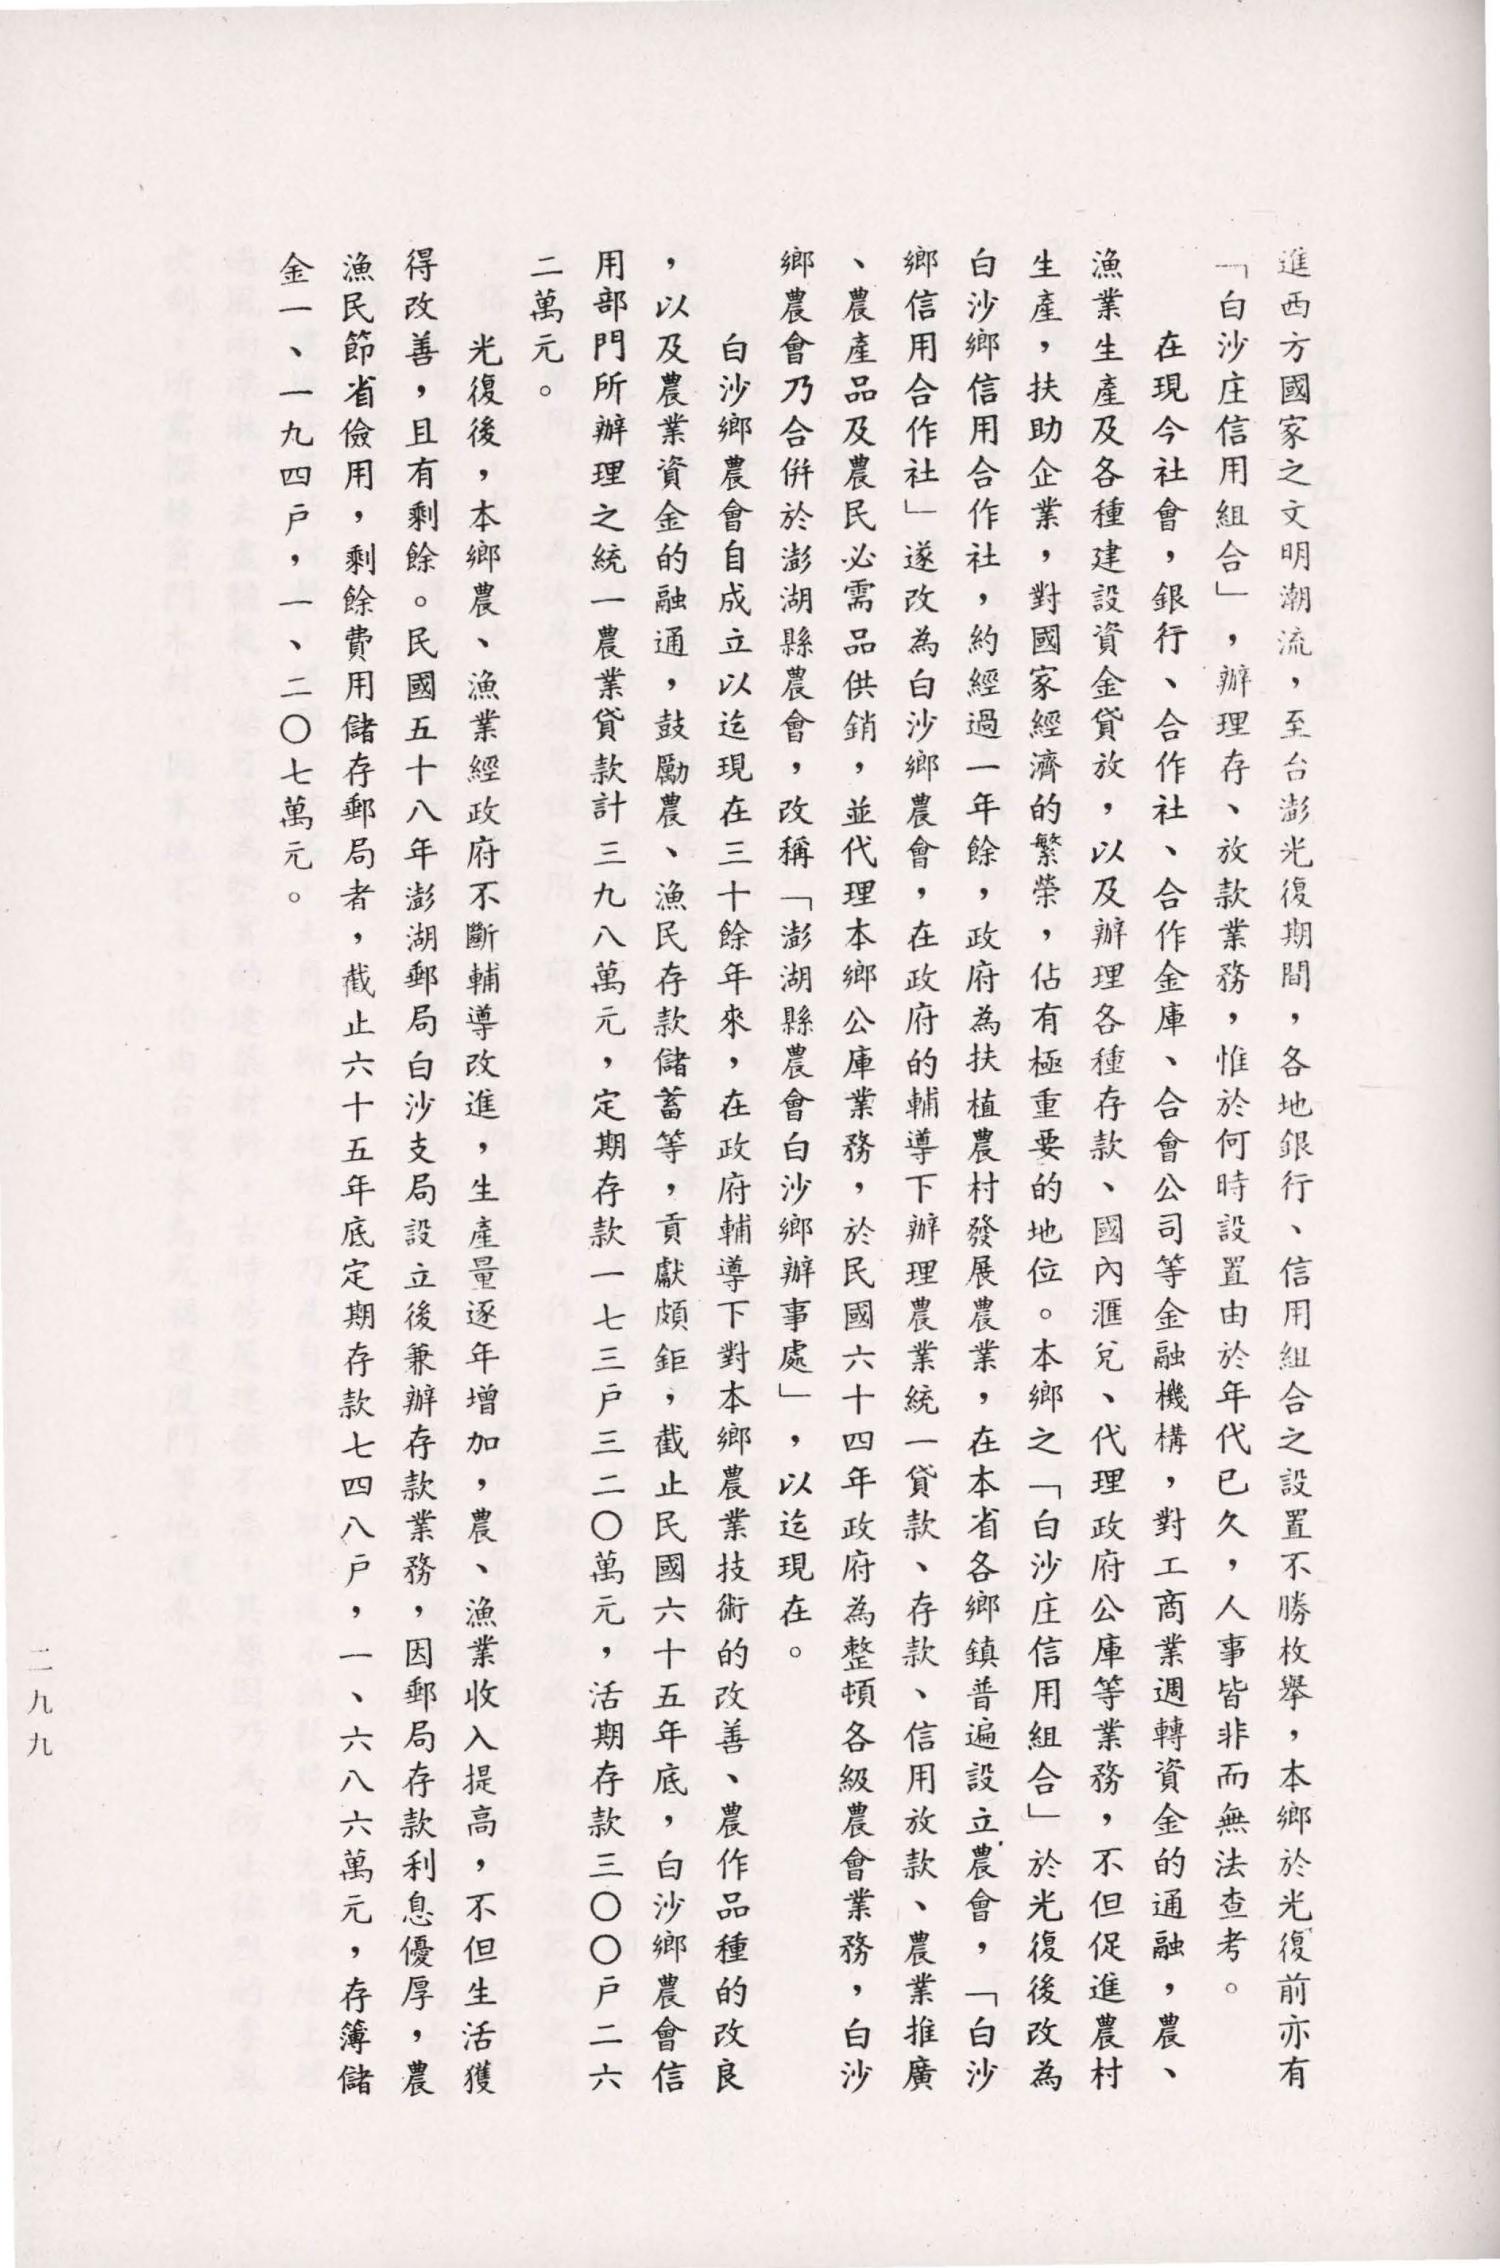 進西方國家之文明潮流，至台澎光復期間，各地銀行、信用組合之設置不勝枚舉，本鄉於光復前亦有
「白沙庄信用組合」，辦理存、放款業務，惟於何時設置由於年代已久，人事皆非而無法查考。
在現今社會，銀行、合作社、合作金庫、合會公司等金融機構，對工商業週轉資金的通融，農、
漁業生產及各種建設資金貸放，以及辦理各種存款、國內滙兌、代理政府公庫等業務，不但促進農村
生產，扶助企業，對國家經濟的繁榮，佔有極重要的地位。本鄉之「白沙庄信用組合」於光復後改為
白沙鄉信用合作社，約經過一年餘，政府為扶植農村發展農業，在本省各鄉鎮普遍設立農會，「白沙
鄉信用合作社」遂改為白沙鄉農會，在政府的輔導下辦理農業統一貸款、存款、信用放款、農業推廣
、農產品及農民必需品供銷，並代理本鄉公庫業務，於民國六十四年政府為整頓各級農會業務，白沙
鄉農會乃合併於澎湖縣農會，改稱「澎湖縣農會白沙鄉辦事處」，以迄現在。
白沙鄉農會自成立以迄現在三十餘年來，在政府輔導下對本鄉農業技術的改善、農作品種的改良
，以及農業資金的融通，鼓勵農、漁民存款儲蓄等，貢獻頗鉅，截止民國六十五年底，白沙鄉農會信
用部門所辦理之統一農業貸款計三九八萬元，定期存款一七三戶三二〇萬元，活期存款三〇〇戶二六
二萬元。
光復後，本鄉農、漁業經政府不斷輔導改進，生產量逐年增加，農、漁業收入提高，不但生活獲
得改善，且有剩餘。民國五十八年澎湖郵局白沙支局設立後兼辦存款業務，因郵局存款利息優厚，農
漁民節省儉用，剩餘費用儲存郵局者，截止六十五年底定期存款七四八戶，一、六八六萬元，存簿儲
金一、一九四戶，一、二〇七萬元。
二九九